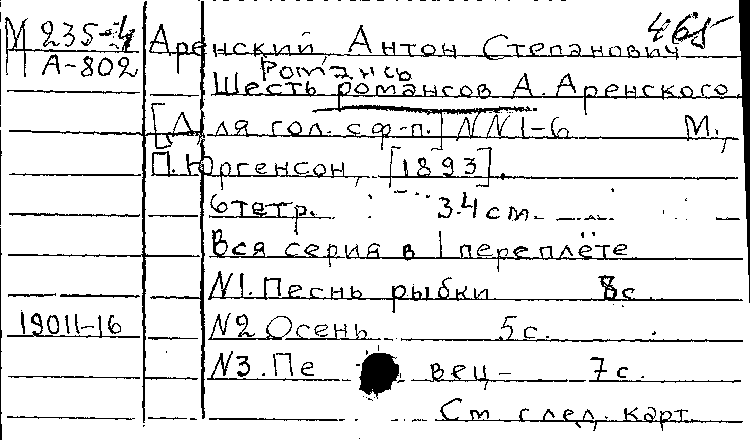 М 235-4
А-802
465
Аренский, Антон Степанович
Романсы
Шесть романсов А. Аренского.
[Для гол. с ф-п.] NN1-6 М.,
П. Юргенсон, [1893].
6 тетр. 34 см.
Вся серия в 1 переплёте
N1. Песнь рыбки 8 с.
19011-16
N2 Осень 5 с.
N3. Пе вец - 7 с.
См след. карт.